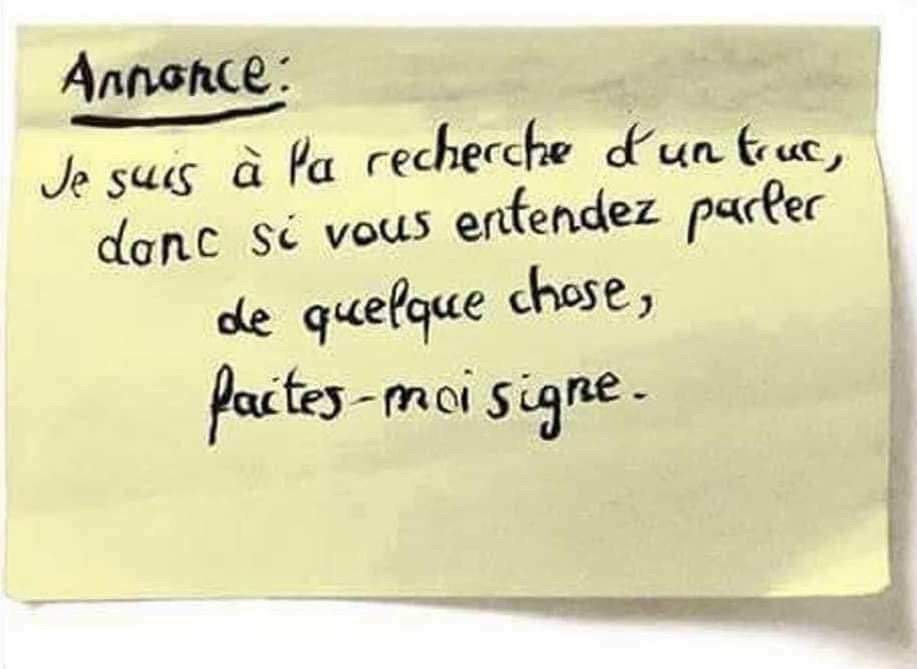 Annonce:
Je suis à la recherche d'un truc,
donc si vous entendez parler
de quelque chose,
faites-moi signe.